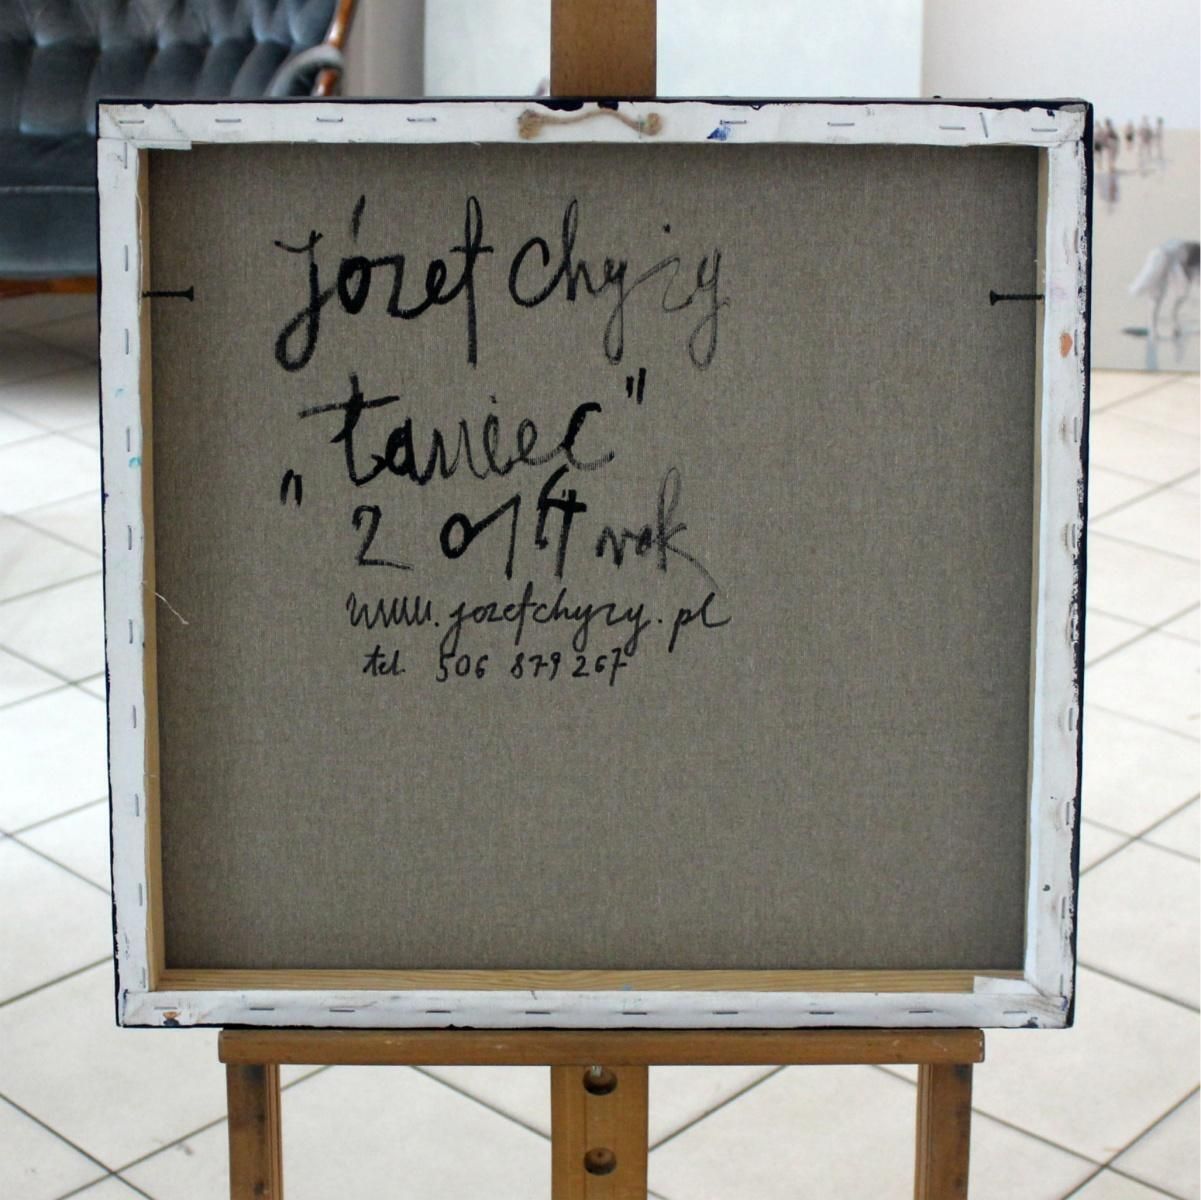 józef chyzy
„taniec"
2014 rok
www.jozefchyzy.pl
tel. 506 879 267